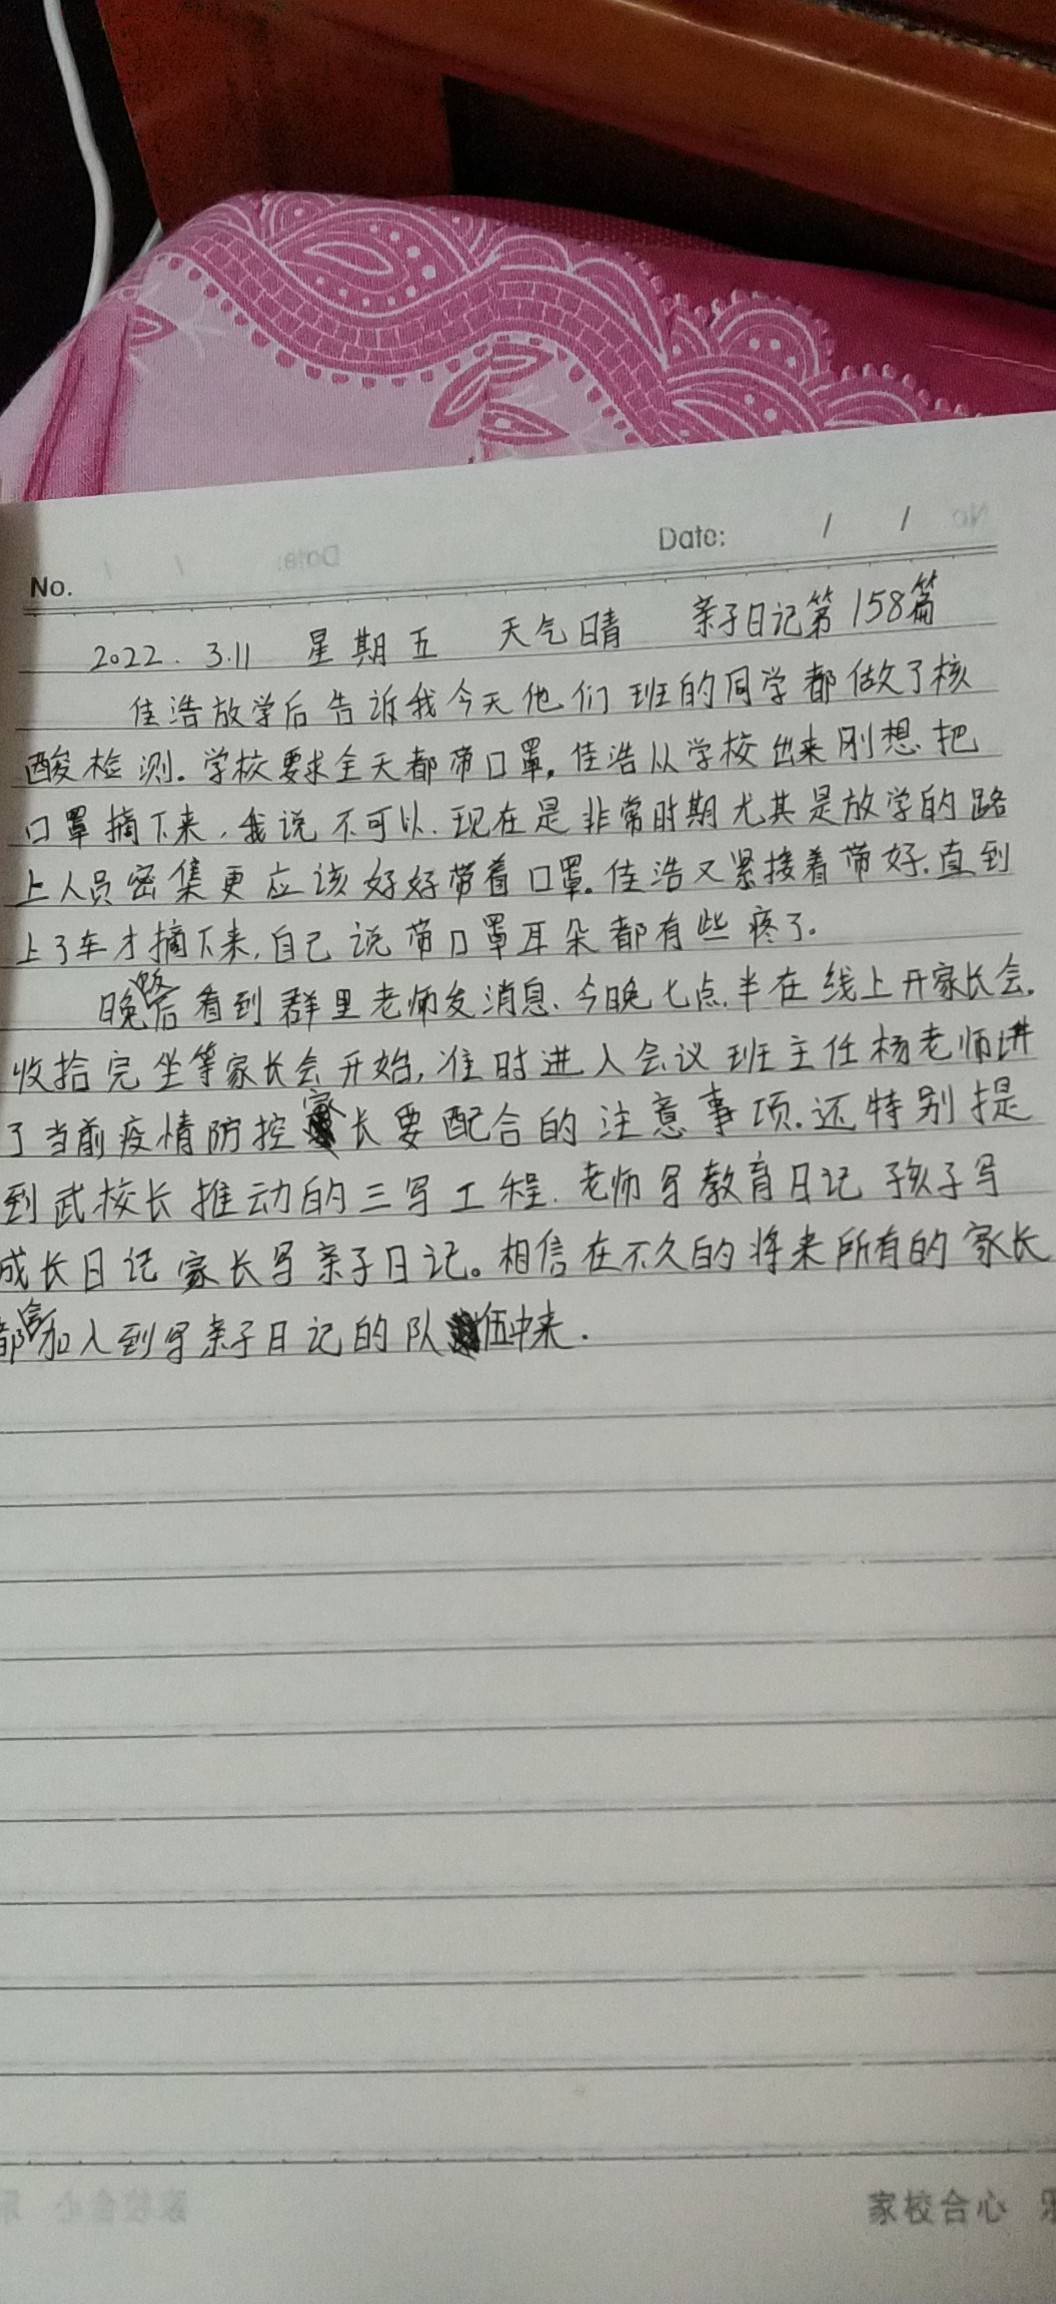 Date: / /
No.
2022.3.11 星期五 天气晴 亲子日记第158篇
佳浩放学后告诉我今天他们班的同学都做了核
酸检测.学校要求全天都带口罩.佳浩从学校出来刚想把
口罩摘下来,我说不可以.现在是非常时期尤其是放学的路
上人员密集更应该好好带着口罩.佳浩又紧接着带好.直到
上了车才摘下来,自己说带口罩耳朵都有些疼了.
晚饭后看到群里老师发消息、今晚七点半在线上开家长会.
收拾完坐等家长会开始,准时进入会议班主任杨老师讲
了当前疫情防控家长要配合的注意事项.还特别提
到武校长推动的三写工程.老师写教育日记孩子写
成长日记家长写亲子日记。相信在不久的将来所有的家长
都会加入到写亲子日记的队伍中来.
家校合心